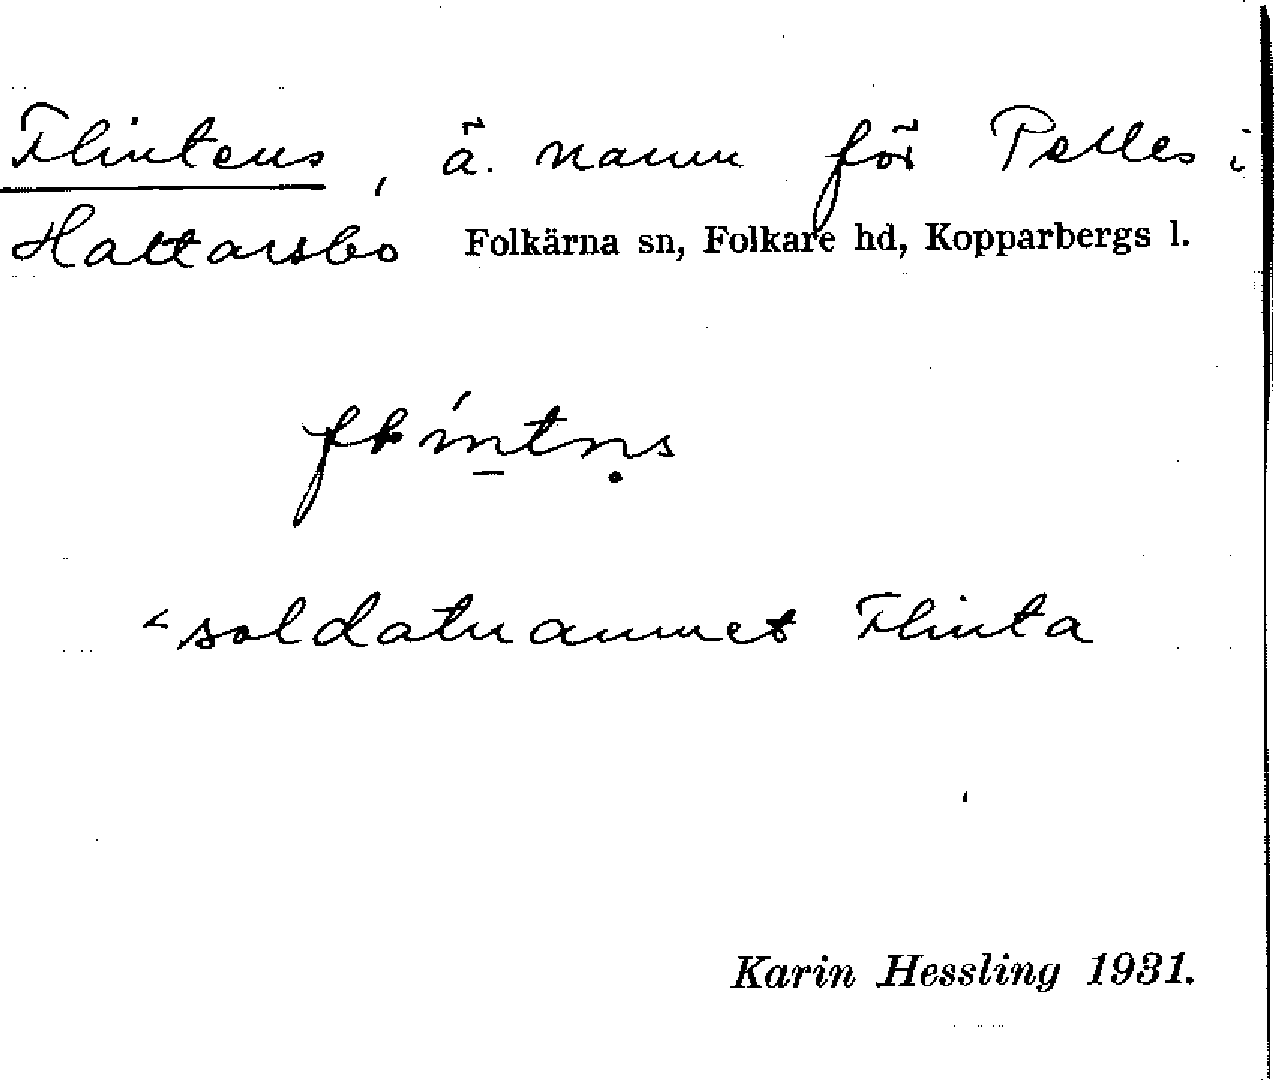 Flintens, ä. namn för Pelles i
Hattarsbo Folkärna sn, Folkare hd, Kopparbergs l.
<soldatnamnet Flinta
Karin Hessling 1931.